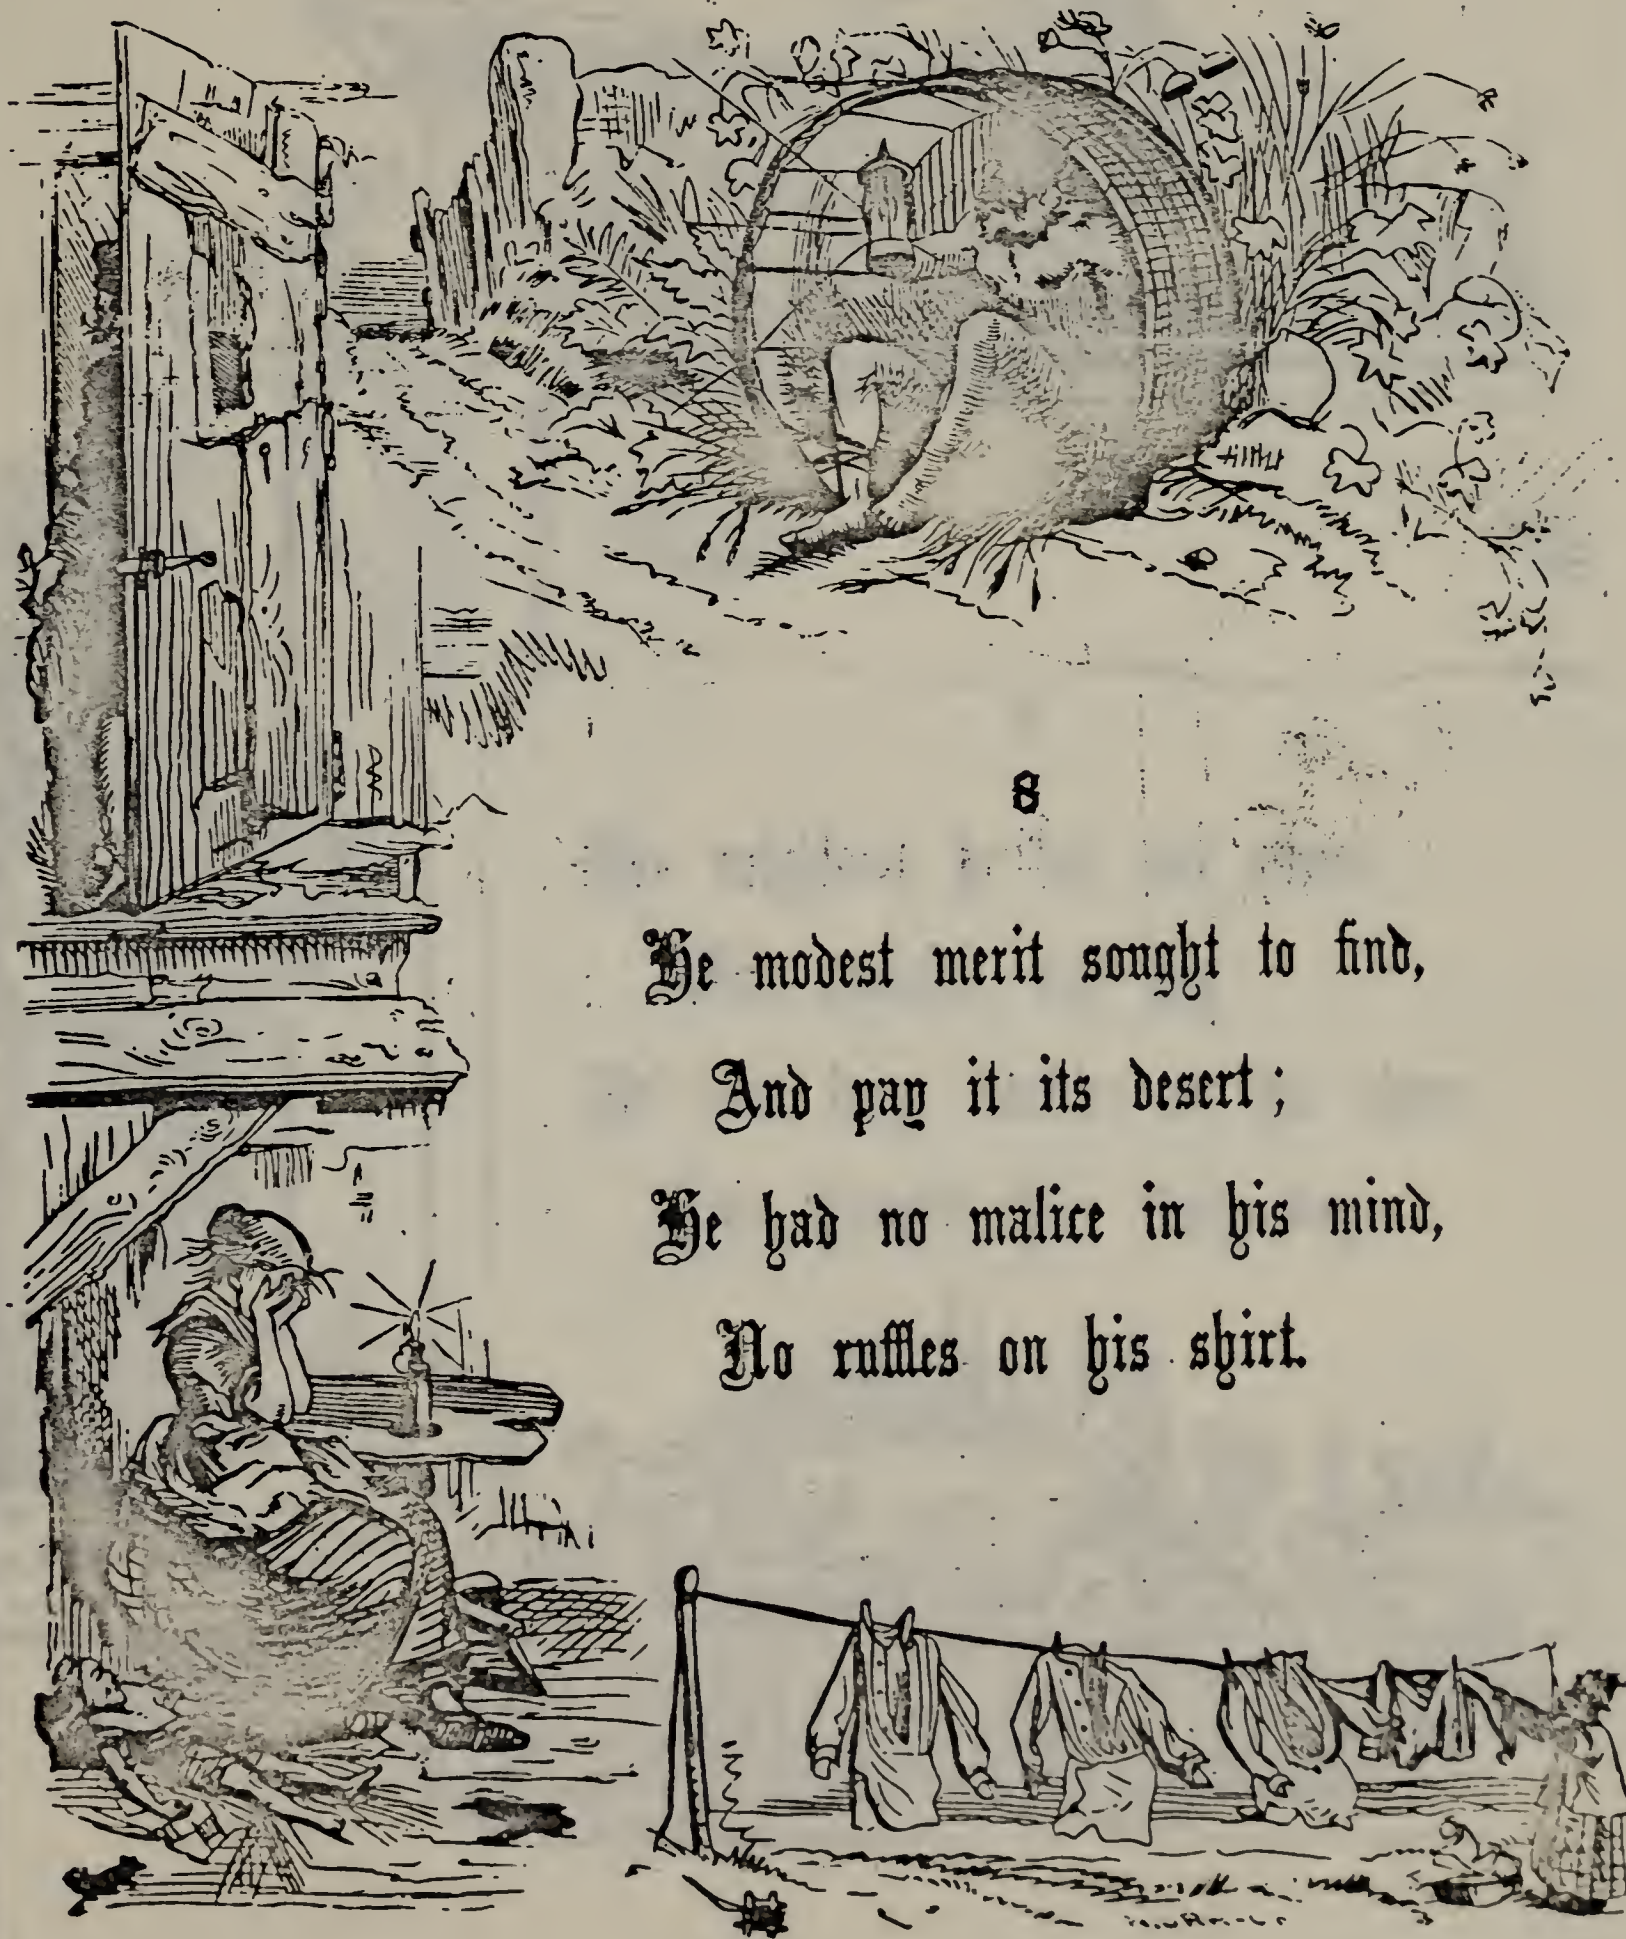 8
He modest merit sought to find,
And pay it its desert;
He had no malice in his mind,
No ruffles on his shirt.